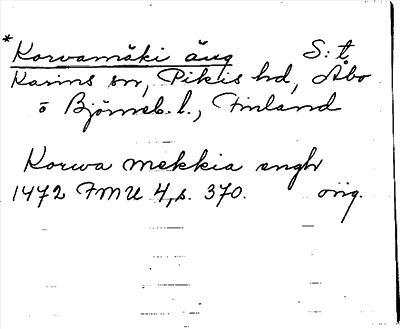 * Korvamäki äng S:t
Karins sn, Pikis hd, Åbo
o Björneb. l., Finland
Korwa mekkia ængh
1472 FMU 4, s. 370. orig.